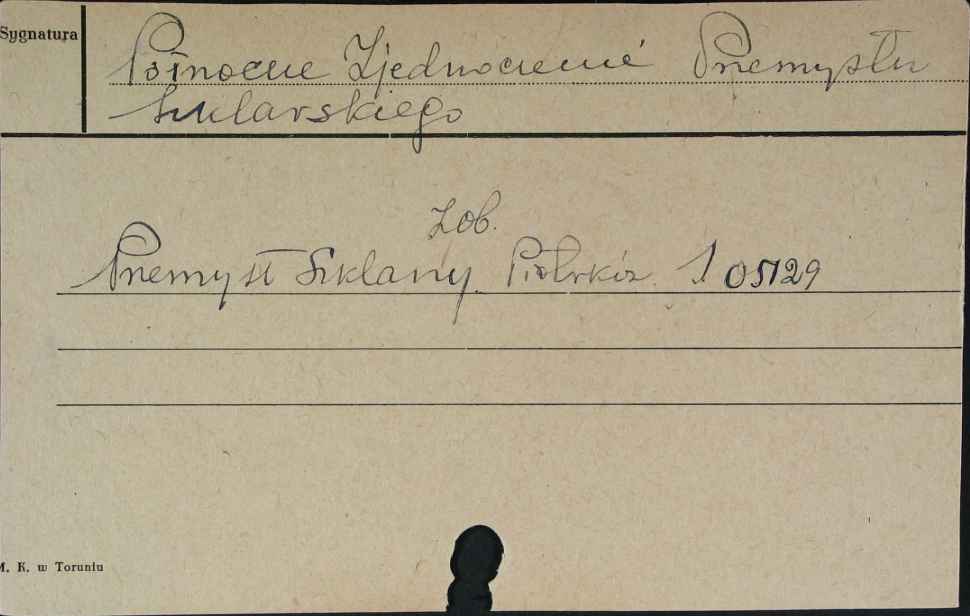 Sygnatura
Północne Zjednoczenie Przemysłu
Szklarskiego
Zob.
Przemysł Szklany. Piotrków. 1 05729
M. K. w Toruniu